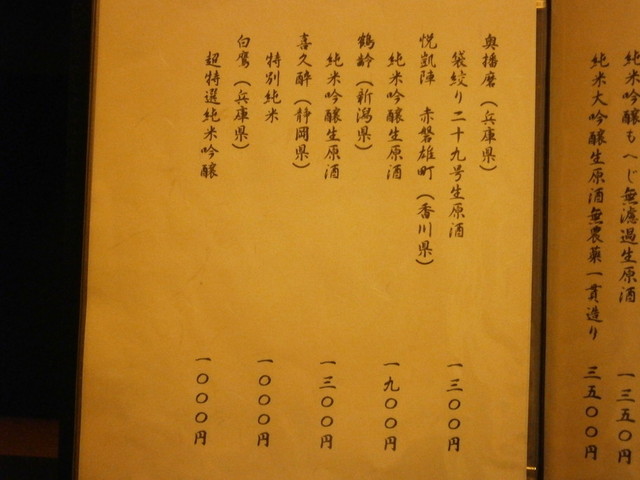 純米吟醸もへじ無濾過生原酒 一三五〇円
純米大吟醸生原酒無農薬一貫造り 三五〇〇円
奥播磨（兵庫県）
袋絞り二十九号生原酒 一三〇〇円
悦凱陣 赤磐雄町（香川県）
純米吟醸生原酒 一九〇〇円
鶴齢（新潟県）
純米吟醸生原酒 一三〇〇円
喜久酔（静岡県）
特別純米 一〇〇〇円
白鷹（兵庫県）
超特選純米吟醸 一〇〇〇円